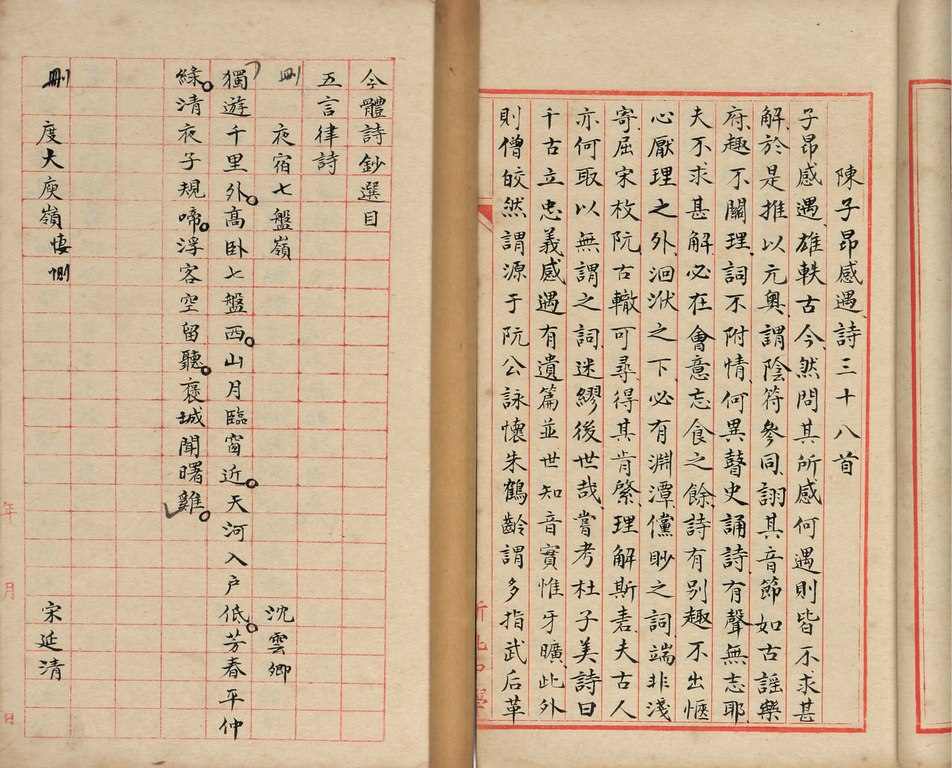 陳子昂感遇詩三十八首
子昂感遇雄軼古今然問其所感何遇則皆不求甚
解於是推以元奧謂陰符參同詡其音節如古謠樂
府趣不關理詞不附情何異瞽史誦詩有聲無志耶
夫不求甚解必在會意忘食之餘詩有別趣不出愜
心厭理之外洄洑之下必有淵潭儻眇之詞端非淺
寄屈宋枚阮古轍可尋得其肯綮理解斯夫古人
亦何取以無謂之詞迷繆後世哉嘗考杜子美詩曰
千古立忠義感遇有遺篇並世知音實惟牙曠此外
則僧皎然謂源于阮公詠懷朱鶴齡謂多指武后革
今體詩鈔選目
五言律詩
刪 夜宿七盤嶺 沈雲卿
獨遊千里外高卧七盤西山月臨窗近天河入戶低芳春平仲
綠清夜子規啼浮客空留聽褒城聞曙雞
刪 度大庾嶺 悽惻 宋延清
年 月 日